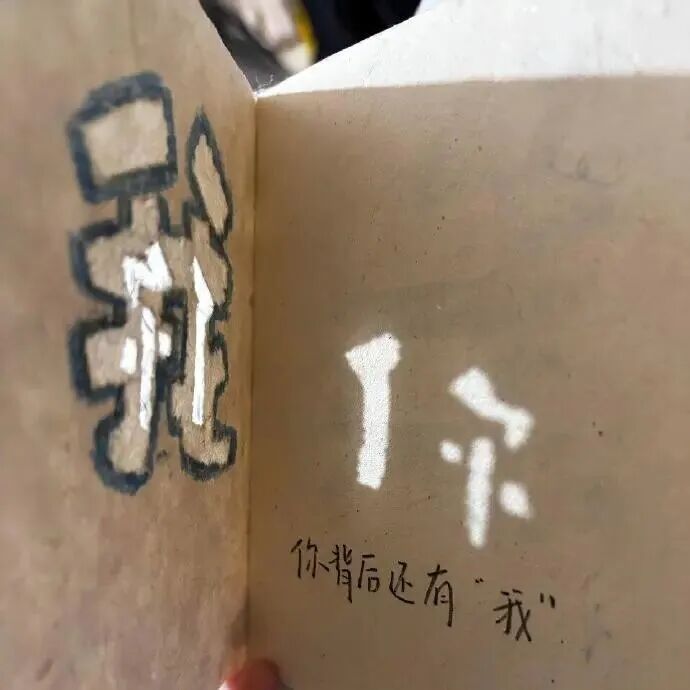 我
你
你背后还有"我"